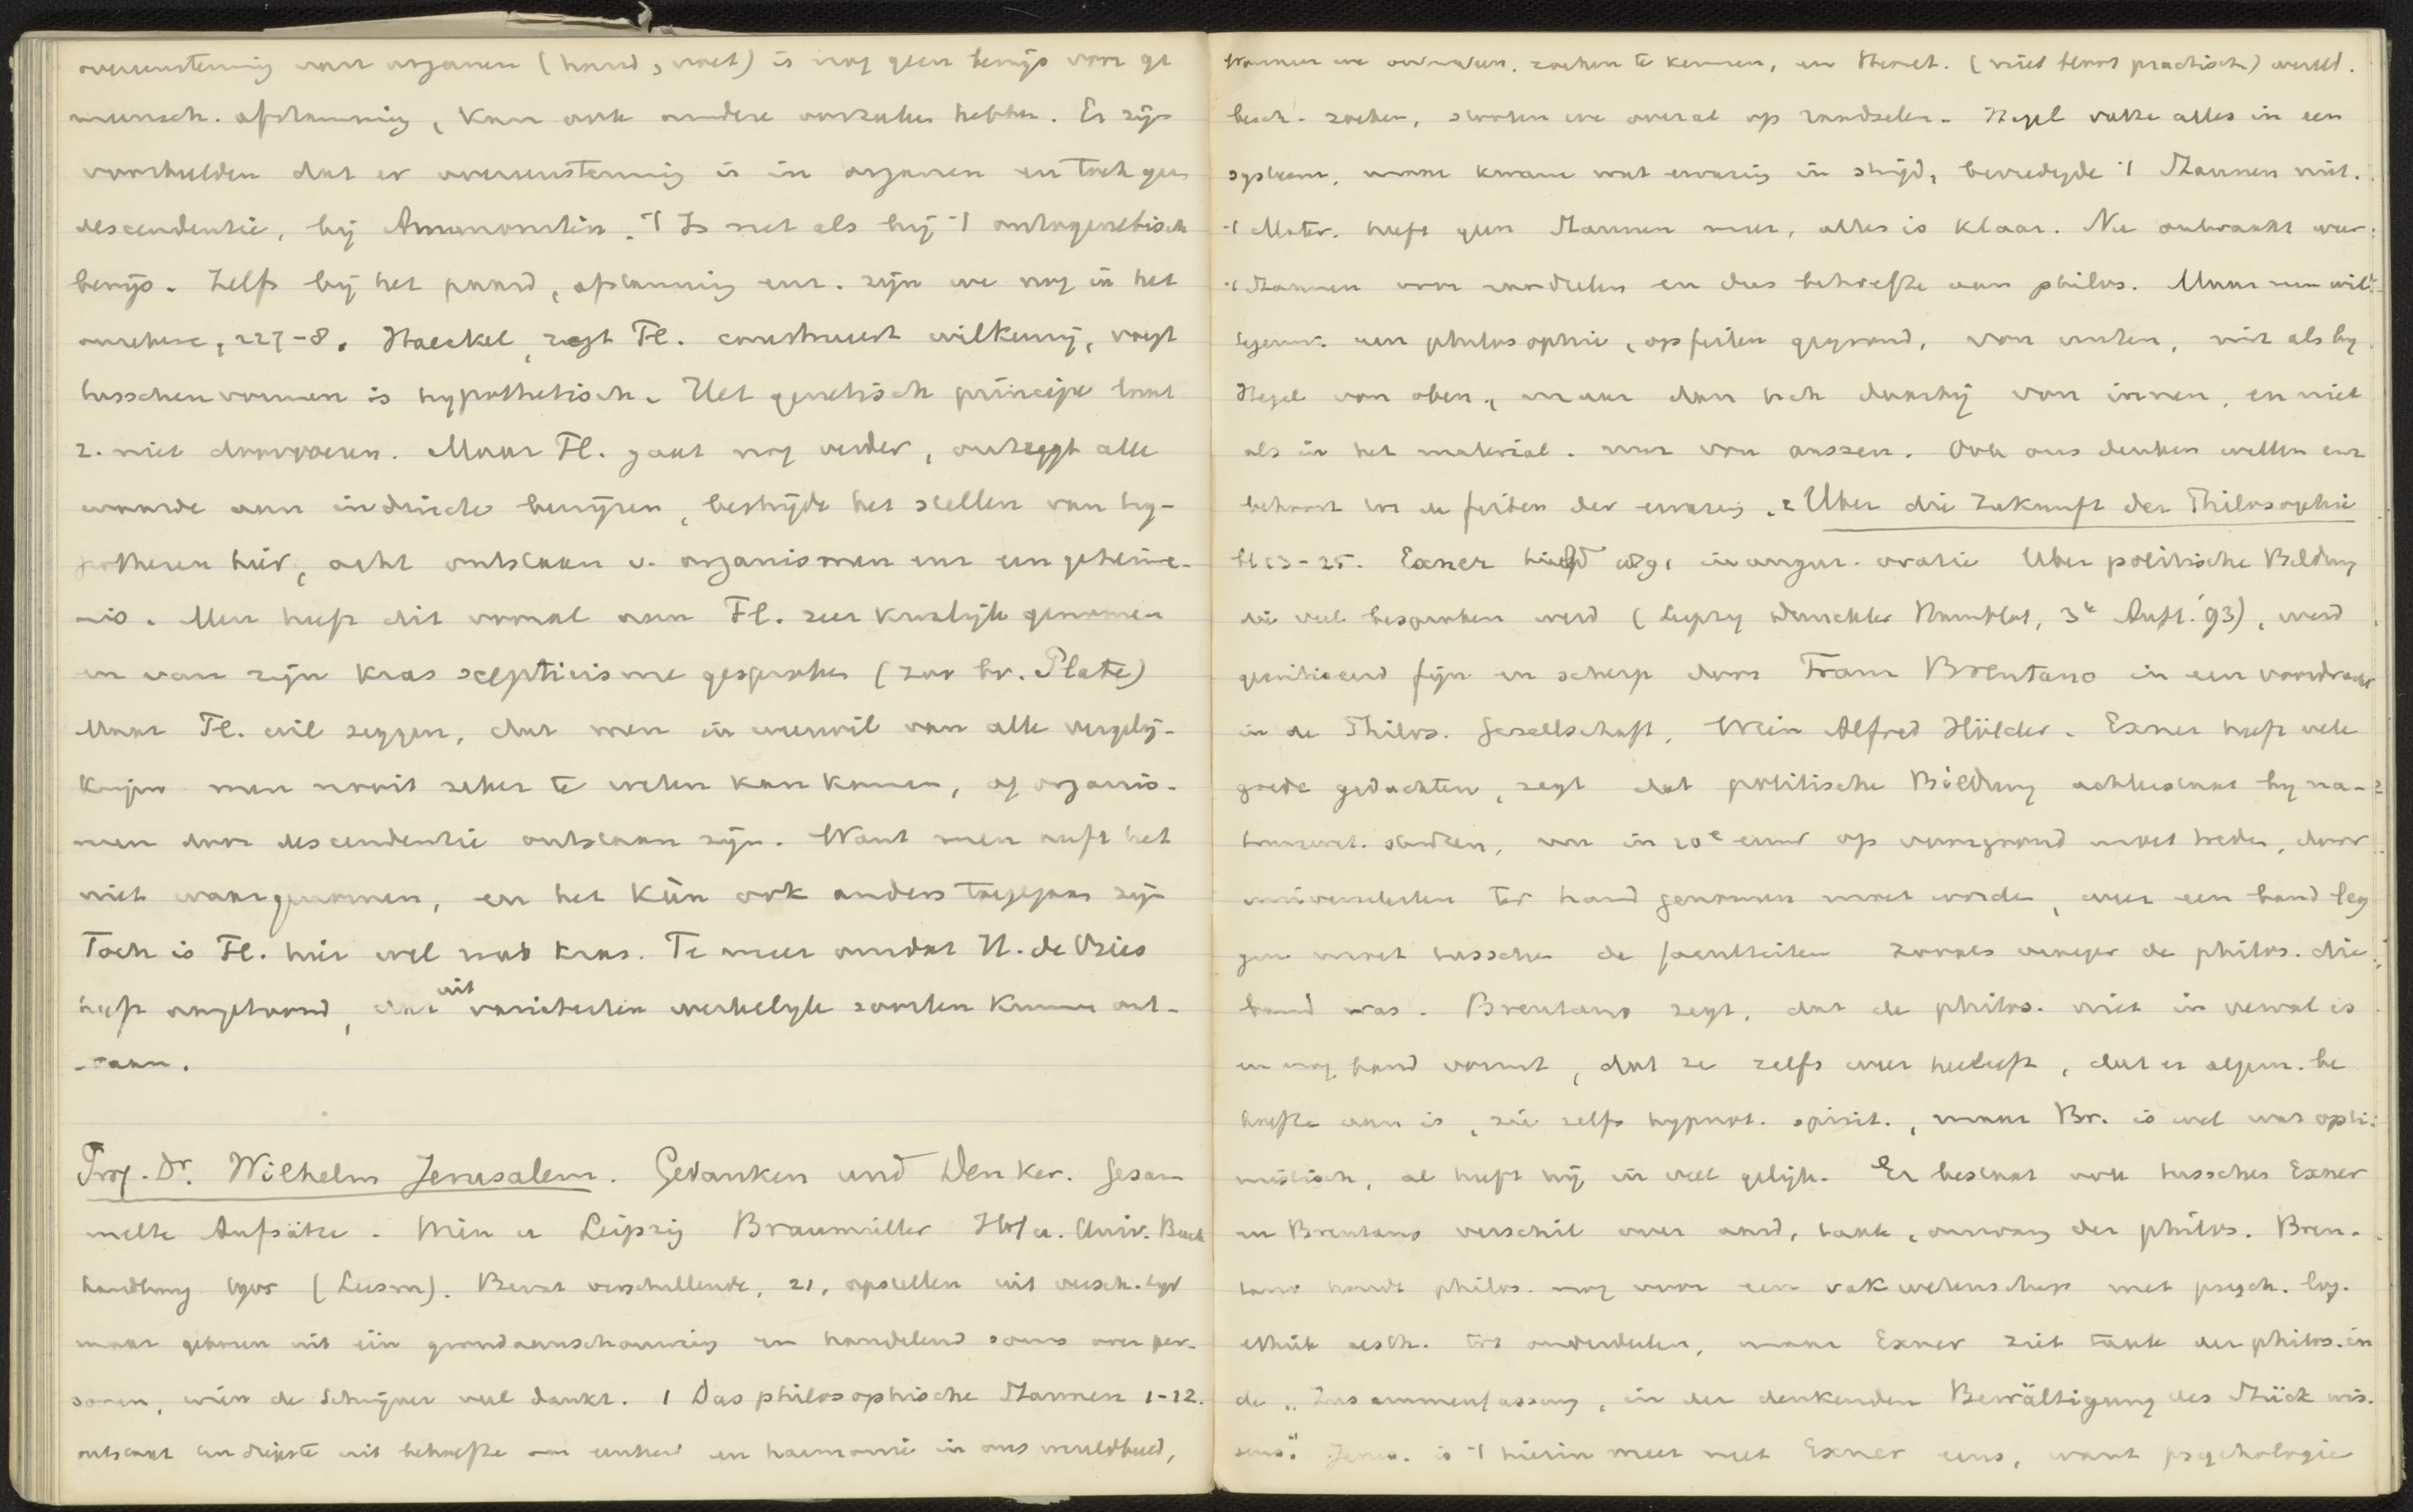 overeenstemming van organen (hand, voet) is nog geen bewijs voor ge
meensch. afstamming, kan ook andere oorzaken hebben. Er zijn
voorbeelden dat er overeenstemming is in organen en toch geen
descendentie, bij Ammonieten. 't Is net als bij 't ontogenetisch
bewijs. Zelfs bij het paard, afstamming enz. zijn we nog in het
onzekere, 227-8. Haeckel, zegt Fl. construeert willekeurig, voegt
tusschenvormen is hypothetisch. Het genetisch principe laat
z. niet doorvoeren. Maar Fl. gaat nog verder, ontzegt alle
waarde aan indirecte bewijzen, bestrijdt het stellen van hy-
pothesen hier, acht ontstaan v. organismen enz een geheime-
nis. Men heeft dit vooral aan Fl. zeer kwalijk genomen
en van zijn kras scepticisme gesproken (zoo bv. Plate)
Maar Fl. wil zeggen, dat men in weerwil van alle vergelij-
kingen men nooit zeker te weten kan komen, of organis-
men door descendentie ontstaan zijn. Want men heeft het
niet waargenomen, en het kan ook anders toegegaan zijn
Toch is Fl. hier wel wat kras. Te meer omdat H. de Vries
heeft aangetoond, dat uit varieteiten werkelijk soorten kunnen ont-
staan.
Prof. Dr. Wilhelm Jerusalem. Gedanken und Denker. Gesam
melte Aufsätze. Wien u Leipzig Braumüller Hof u. Univ. Buch
handlung 1905 (Leesm). Bevat verschillende, 21, opstellen uit versch. tijd
maar geboren uit één grondaanschouwing en handelend soms over per-
sonen, wien de Schrijver veel dankt. 1 Das philosophische Staunen 1-12.
ontstaat ten diepste uit behoefte aan eenheid en harmonie in ons wereldbeeld,
Wanneer we zoeken te kennen, en theoret. (niet bloot practisch) wereld.
besch. zoeken, stooten we overal op raadselen. Hegel vatte alles in een
systeem, maar kwam met ervaring in strijd, bevredigde 't Staunen niet.
't Mater. heeft geen Staunen meer, alles is klaar. Nu ontwaakt weer
't Staunen voor raadselen en dus behoefte aan philos. Maar men wil
tegenw. een philosophie, op feiten gegrond, van onten, niet als bij
Hegel van oben, maar dan ook daarbij van innen, en niet
als in het material. nur von aussen. Ook ons denken willen enz
behoort tot de feiten der ervaring. 2 Über die Zukunft der Philosophie
bl 13-25. Exner hield 1891 inaugur. oratie Über politische Bildung
die veel besproken werd (Leipzig Duncker Humblot, 3e Aufl. '93), werd
gecritiseerd fijn en scherp door Franz Brentano in een voordracht
in de Philos. Gesellschaft, Wien Alfred Hölder. Exner heeft vele
goede gedachten, zegt dat politische Bildung achterstaat bij na-
tuurwet. studien, en in 20e eeuw op voorgrond moet treden, door
universiteiten ter hand genomen moet worden, weer een band leg
gen moet tusschen de faculteiten zooals vroeger de philos. die
band was. Brentano zegt, dat de philos. niet in verval is
en nog band vormt, dat ze zelfs weer herleeft, dat er algem. be
hoefte aan is, zie zelfs hypnot. spirit., maar Br. is wel wat opti-
mistisch, al heeft hij in veel gelijk. Er bestaat ook tusschen Exner
en Brentano verschil over aard, taak, omvang der philos. Bren-
tano houdt philos. nog voor een vakwetenschap met psych. log.
ethiek aesth. tot onderdeelen, maar Exner ziet taak der philos. in
de „Zusammenfassung, in der denkenden Bewältigung des Stück wis-
sens." Jerus. is 't hierin meer met Exner eens, want psychologie